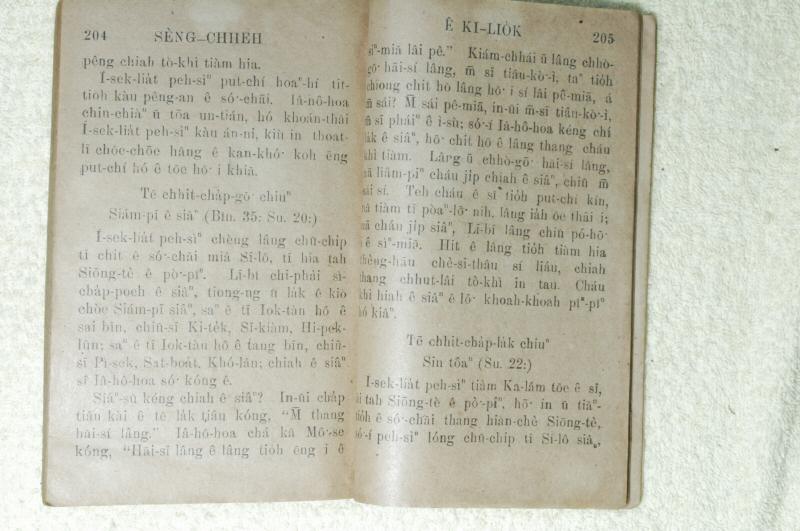 204 SÈNG–CHHEH
pêng chiah tò-khì tiàm hia.
Í-sek-lia̍t peh-sìⁿ put-chí hoaⁿ-hí tit-
tio̍h kàu pêng-an ê só͘-chāi. Iâ-hô-hoa
chin-chiàⁿ ū tōa un-tián, hó khoán-thāi
Í-sek-lia̍t peh-sìⁿ kàu án-ni, kiù in thoat-
lī chōe-chōe hāng ê kan-khó͘ koh ēng
put-chí hó ê tōe hō͘ i khiā.
Tē chhit-cha̍p-gō͘ chiuⁿ
Siám-pī ê siâⁿ (Bîn. 35: Su. 20:)
Í-sek-lia̍t peh-sìⁿ chèng lâng chū-chi̍p
tī chi̍t ê só͘-chāi miâ Sí-lô, tī hia tah
Siōng-tè ê pò͘-pîⁿ. Lī-bī chi-phài sì-
cha̍p-poeh ê siâⁿ, tiong-ng ū la̍k ê kiò
chòe Siám-pī siâⁿ, saⁿ ê tī Iok-tàn hô ê
sai bīn, chiū-sī Ki-te̍k, Sī-kiàm, Hi-pek-
lûn; saⁿ ê tī Iok-tàn hô ê tang bīn, chiū-
sī Pí-sek, Sat-boa̍t, Khó-lân; chiah ê siâⁿ
sī Iâ-hô-hoa só͘ kóng ê.
Siáⁿ-sū kéng chiah ê siâⁿ? In-ūi cha̍p
tiâu kài ê tē la̍k tiâu kóng, “M̄ thang
hāi-sí lâng.” Iâ-hô-hoa chá kā Mô͘-se
kóng, “Hāi-sí lâng ê lâng tio̍h ēng i ê
Ê KI-LIO̍K 205
sìⁿ-miā lâi pê.” Kiám-chhái ū lâng chhò-
gō͘ hāi-sí lâng, m̄ sī tiâu-kò͘-ì, taⁿ tio̍h
chiong chit hō lâng hō͘ i sí lâi pê-miā, á
m̄ sái? M̄ sái pê-miā, in-ūi m̄-sī tiâu-kò͘-ì,
m̄ sī pháiⁿ ê ì-sù; só͘-í Iâ-hô-hoa kéng chí
la̍k ê siâⁿ, hō͘ chit hō ê lâng thang cháu
khì tiàm. Lâng ū chhò-gō͘ hāi-sí lâng,
nā liâm-piⁿ cháu ji̍p chiah ê siâⁿ, chiū m̄
sái sí. Teh cháu ê sî tio̍h put-chí kín,
nā tiàm tī pòaⁿ-lō͘ nih, lâng ia̍h ōe thâi i;
nā cháu ji̍p siâⁿ, Lī-bī lâng chiū pó-hō͘
i ê sìⁿ-miā. Hit ê lâng tio̍h tiàm hia
thèng-hāu chè-si-thâu sí liáu, chiah
thang chhut-lâi tò-khì in tau. Cháu
khì hiah ê siâⁿ ê lō͘ khoah-khoah pîⁿ-pîⁿ
hó kiâⁿ.
Tē chhit-cha̍p-la̍k chiuⁿ
Sin tôaⁿ (Su. 22:)
Í-sek-lia̍t peh-sìⁿ tiàm Ka-lâm tōe ê sî,
ài tah Siōng-tè ê pò͘-pîⁿ, hō͘ in ū tiāⁿ-
tio̍h ê só͘-chāi thang hiàn-chè Siōng-tè,
só͘-í peh-sìⁿ lóng chū-chi̍p tī Sí-lô siâⁿ,